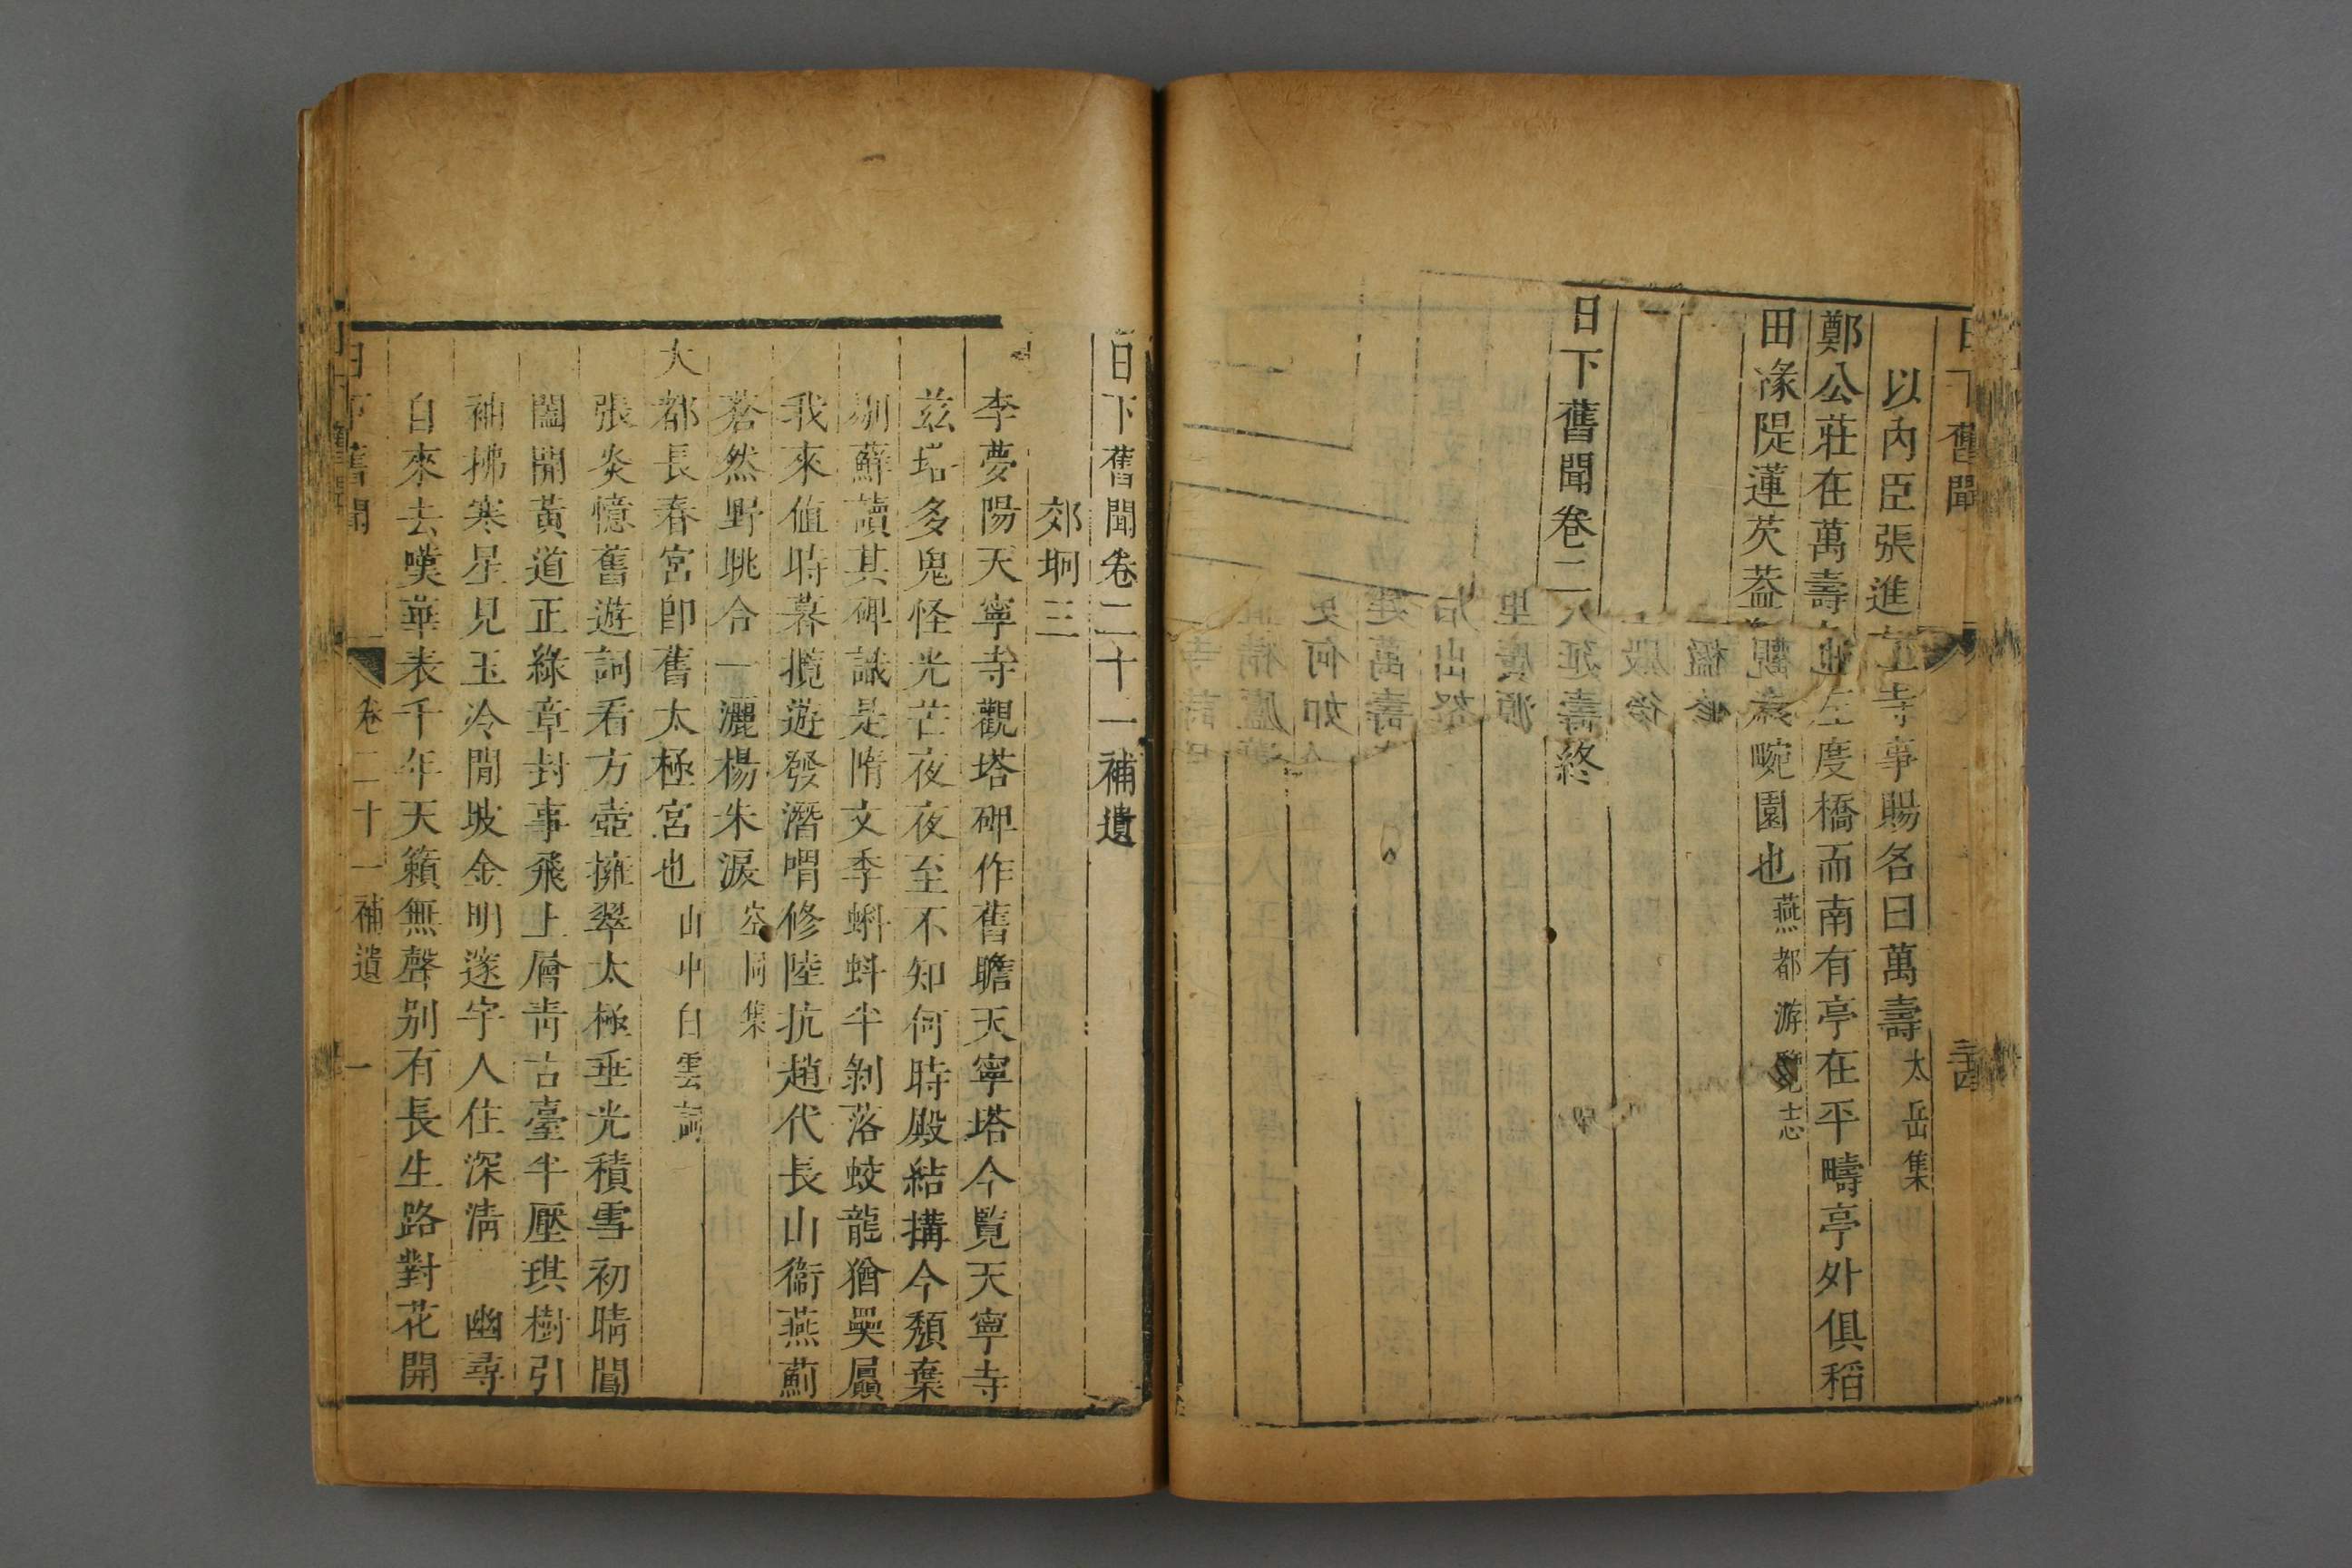 日下舊聞
三十四
以內臣張進主寺事賜名曰萬壽太岳集
鄭公莊在萬壽 左度橋而南有亭在平疇亭外俱稻
田凃隄蓮芡葢 畹園也燕都游覽志
日下舊聞卷二 終
日下舊聞卷二十一補遺
郊坰三
李夢陽天寧寺觀塔碑作舊瞻天寧塔今覽天寧寺
兹塔多鬼怪光芒夜夜至不知何時殿結搆今頹棄
剔蘚讀其碑識是隋文季蝌蚪半剝落蛟龍猶奰屭
我來值時暮攬遊發潛喟修陸抗趙代長山衞燕薊
蒼然野眺合一灑楊朱淚空同集
大都長春宮卽舊太極宮也山中白雲詞
張炎憶舊遊詞看方壺擁翠太極垂光積雪初晴閶
闔開黃道正綠章封事飛上層靑古臺半壓琪樹引
袖拂寒星見玉冷閒坡金明邃宇人住深淸 幽尋
自來去嘆華表千年天籟無聲别有長生路對花開
日下舊聞
卷二十一補遺
一